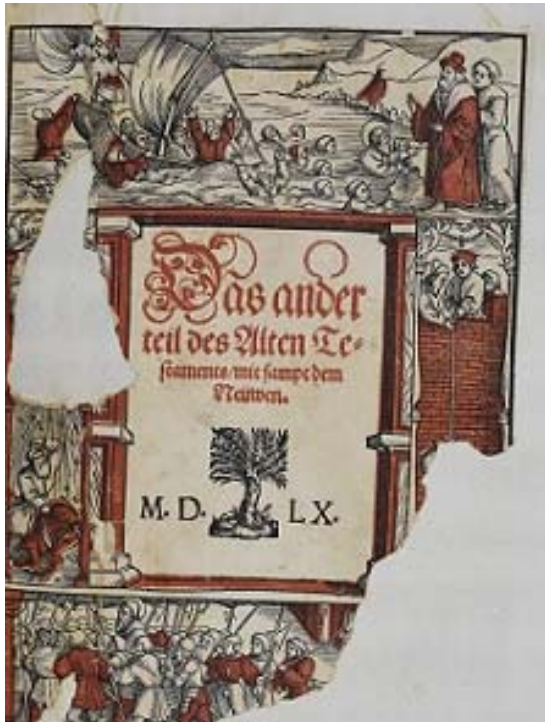 Das ander
teil des Alten Te⸗
ſtaments/mit ſampt dem
Neüwen.
M. D. LX.